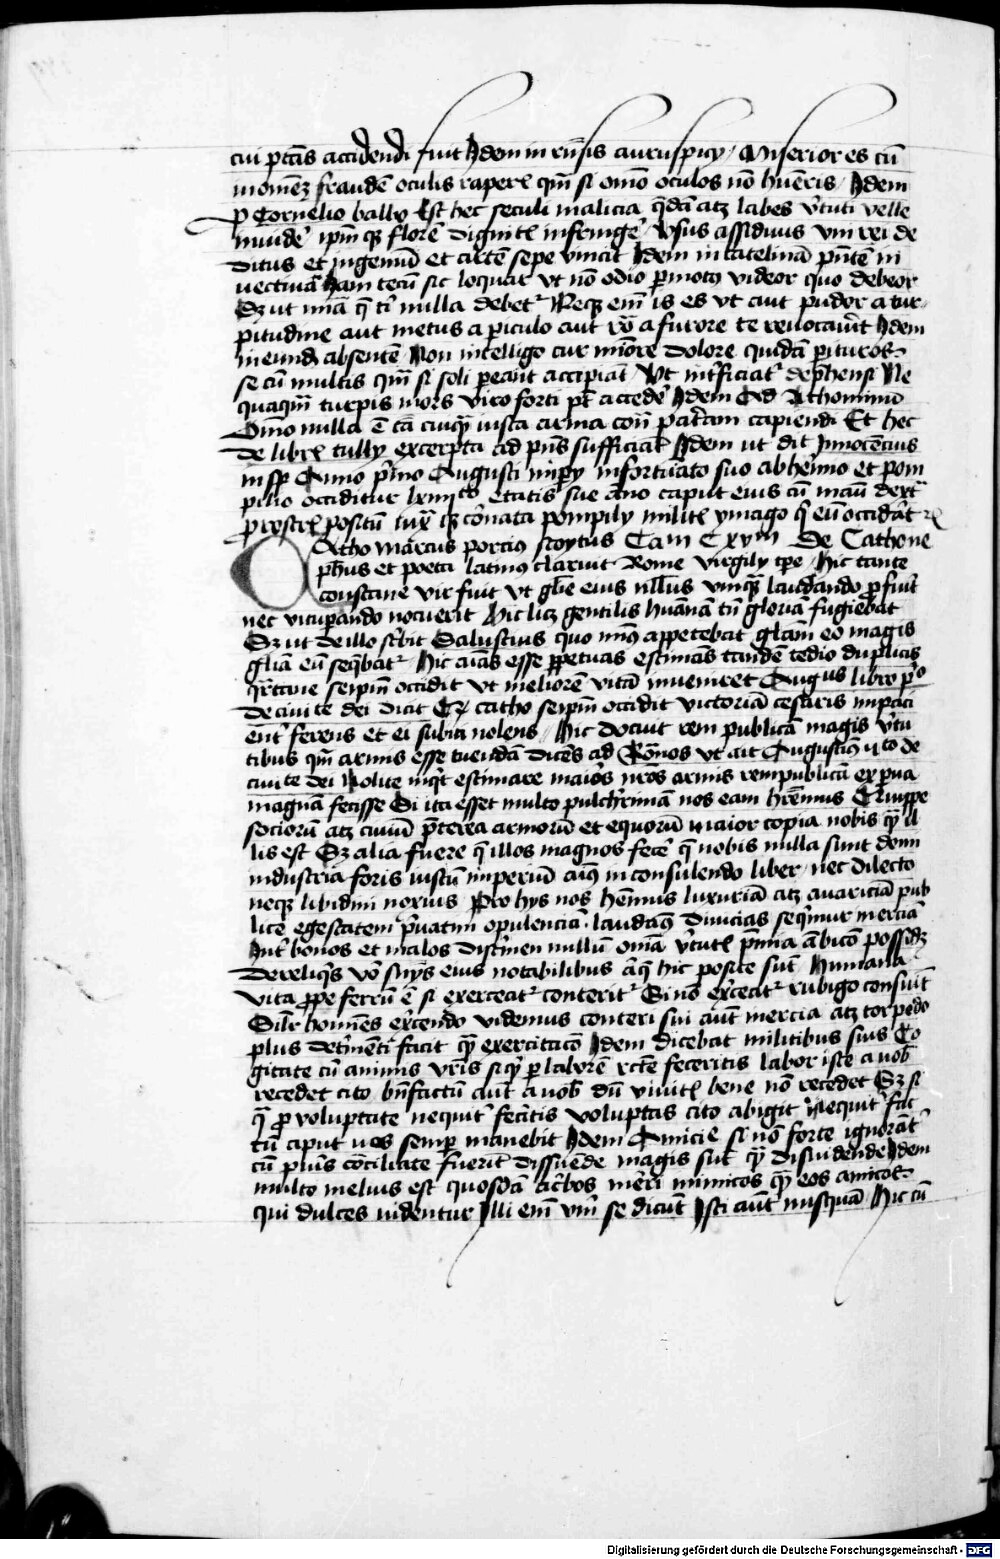 cui ptās accidendi fuit Idem in rn̄sis aruspicꝫ Miserior es cū
in omēꝫ fraudē oculis raperꝭ qm̄ si om̄o oculos nō hūeris Idem
p Cornelio balbo Est hec seculi malicia q̄dā atꝫ labes v̓tuti velle
inuidē ip̄m qꝫ florē dignitꝭ infringē Usus assiduus vni rei de
ditus et ingeniū et artē sepe vincit Idem in catelinā pn̄tē in
uectiua Iam tecū sic loquar vt nō odio permotꝰ videor quo debeor
Sꝫ ut mīa q̄ ti nulla debetꝰ Neqꝫ em̄ is es vt aut pudor a tur
pitudine aut metus a periculo aut rō a furore te reuocauit Idem
absentē Non intelligo cur miōre dolore quidā perituros
se cū multis qm̄ si soli pereant accipiāt Ut int̓ficiatꝰ dephensi Ne
quaqm̄ turpis mors viro forti pt̄ accedē Idem Ad Athominū
Om̄o nulla ē cā cuiqꝫ iusta arma con̄ patriam capiendi Et hec
de librꝭ tullij excerpta ad pn̄s sufficiāt Idem ut dit Innocencius
Anno pri̓mo Augusti impij infortūato suo ab herīno et pom
pilio occiditur lxiiiito etatis sue āno caput eius cū manu dextꝰ
prostrꝭ positū conata pompilij militꝭ ymago q̄ eū occidāt
Catho marcus porcius stoycus Cam Cxvm De Cathone
phūs et poeta latinus claruit Rome virgilij tpe Hic tante
constane vir fuit vt gl̄ie eius nllūs vnqꝫ laudando p̄fuit
nec vitupando nocuerit Hic licꝫ gentilis hūanā tn̄ gloriā fugiebat
Sꝫ ut de illo sc̓bit Salustius quo min̄ appetebat glāiam eo magis
gliā eū seq̄batꝰ Hic aīas esse perpetuas estimās tandē tedio duplicis
seipm̄ occidit vt meliorē vitā inueniret Augꝰus libro po
de ciuite dei dicit Qꝫ catho seipm̄ occidit victoriā cesaris impaci
ent̓ ferens et ei subici nolens Hic docuit rem publicā magis v̓tu
tibus qm̄ armis esse tuendā dicēs ad Rōnos vt ait Augustiꝰ ii to de
ciuite dei Nolite inq̓t estimare maiōs nr̄os armis rempublicā ex pua
magnā fecisse Si ita esset multo pulch̓rimā nos eam hrēmus Quippe
sociorū atꝫ ciuiū p̄terea armorū et equorū maior copia nobis qꝫ il
lis est Sꝫ alia fuere q̄ illos magnos fecē q̄ nobis nulla sunt domi
industria foris iustū imperiū aīꝰ in consulendo liber nec dilecto
neqꝫ libidini noxius Pro hys nos hēmus luxuriā atꝫ auariciā pub
lice egestatem p̓uatim opulenciā laudamꝰ diuicias seq̓mur inerciā
Int̓ bonos et malos disc̓men nullū omīa v̓tutꝭ p̄mia ābico possidꝫ
De reliqis vō suys eius notabilibus atqꝫ hic posite sut Humana
vita ꝓpe ferrū ē si exerceatꝰ conteritꝰ Si nō exceatꝰ rubigo consuit
Silr̄ hoīnes ex̓cendo videmus conteri sui aut̄ inercia atꝫ torpedo
plus det̓menti facit qꝫ exercitaco Idem dicebat militibus suis Co
gitate cū animis vr̄is siqꝫ p laborē rcte feceritis labor iste a vobꝭ
recedet cito bn̄factū aut̄ a vobꝭ dū viuitꝭ bene nō recedet Sꝫ si
q̄ p voluptate nequit̓ fec̓itis voluptas cito abigit Nequit̓ fac
tū aput uos semper manebit Idem Amicie si nō forte ignorāt
cū puīs conciliate fuerit dissuende magis sut qꝫ disindende Idem
multo melius est quosdā ac̓bos meri inimicos qꝫ eos amicos
qui dulces uidentur Illi em̄ vm̄ se dicut Isti aut̄ nusquā Hic cū
Digitalisierung gefördert durch die Deutsche Forschungsgemeinschaft - DFG